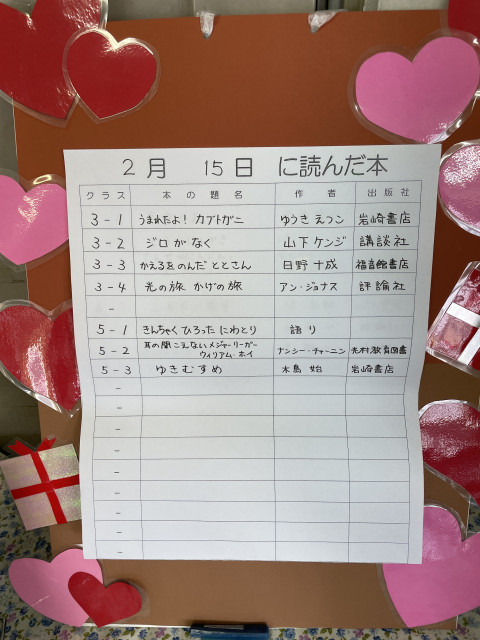 2月 15日 に読んだ本
クラス 本の題名 作者 出版社
3-1 うまれたよ!カブトガニ ゆうきえつこ 岩崎書店
3-2 ジロがなく 山下ケンジ 講談社
3-3 かえるをのんだととさん 日野十成 福音館書店
3-4 光の旅 かげの旅 アン・ジョナス 評論社
-
5-1 きんちゃくひろったにわとり 語り
5-2 耳の聞こえないメジャーリーガー ナンシー・チャーニン 光村教育図書
ウィリアム・ホイ
5-3 ゆきむすめ 木島 始 岩崎書店
-
-
-
-
-
-
-
-
-